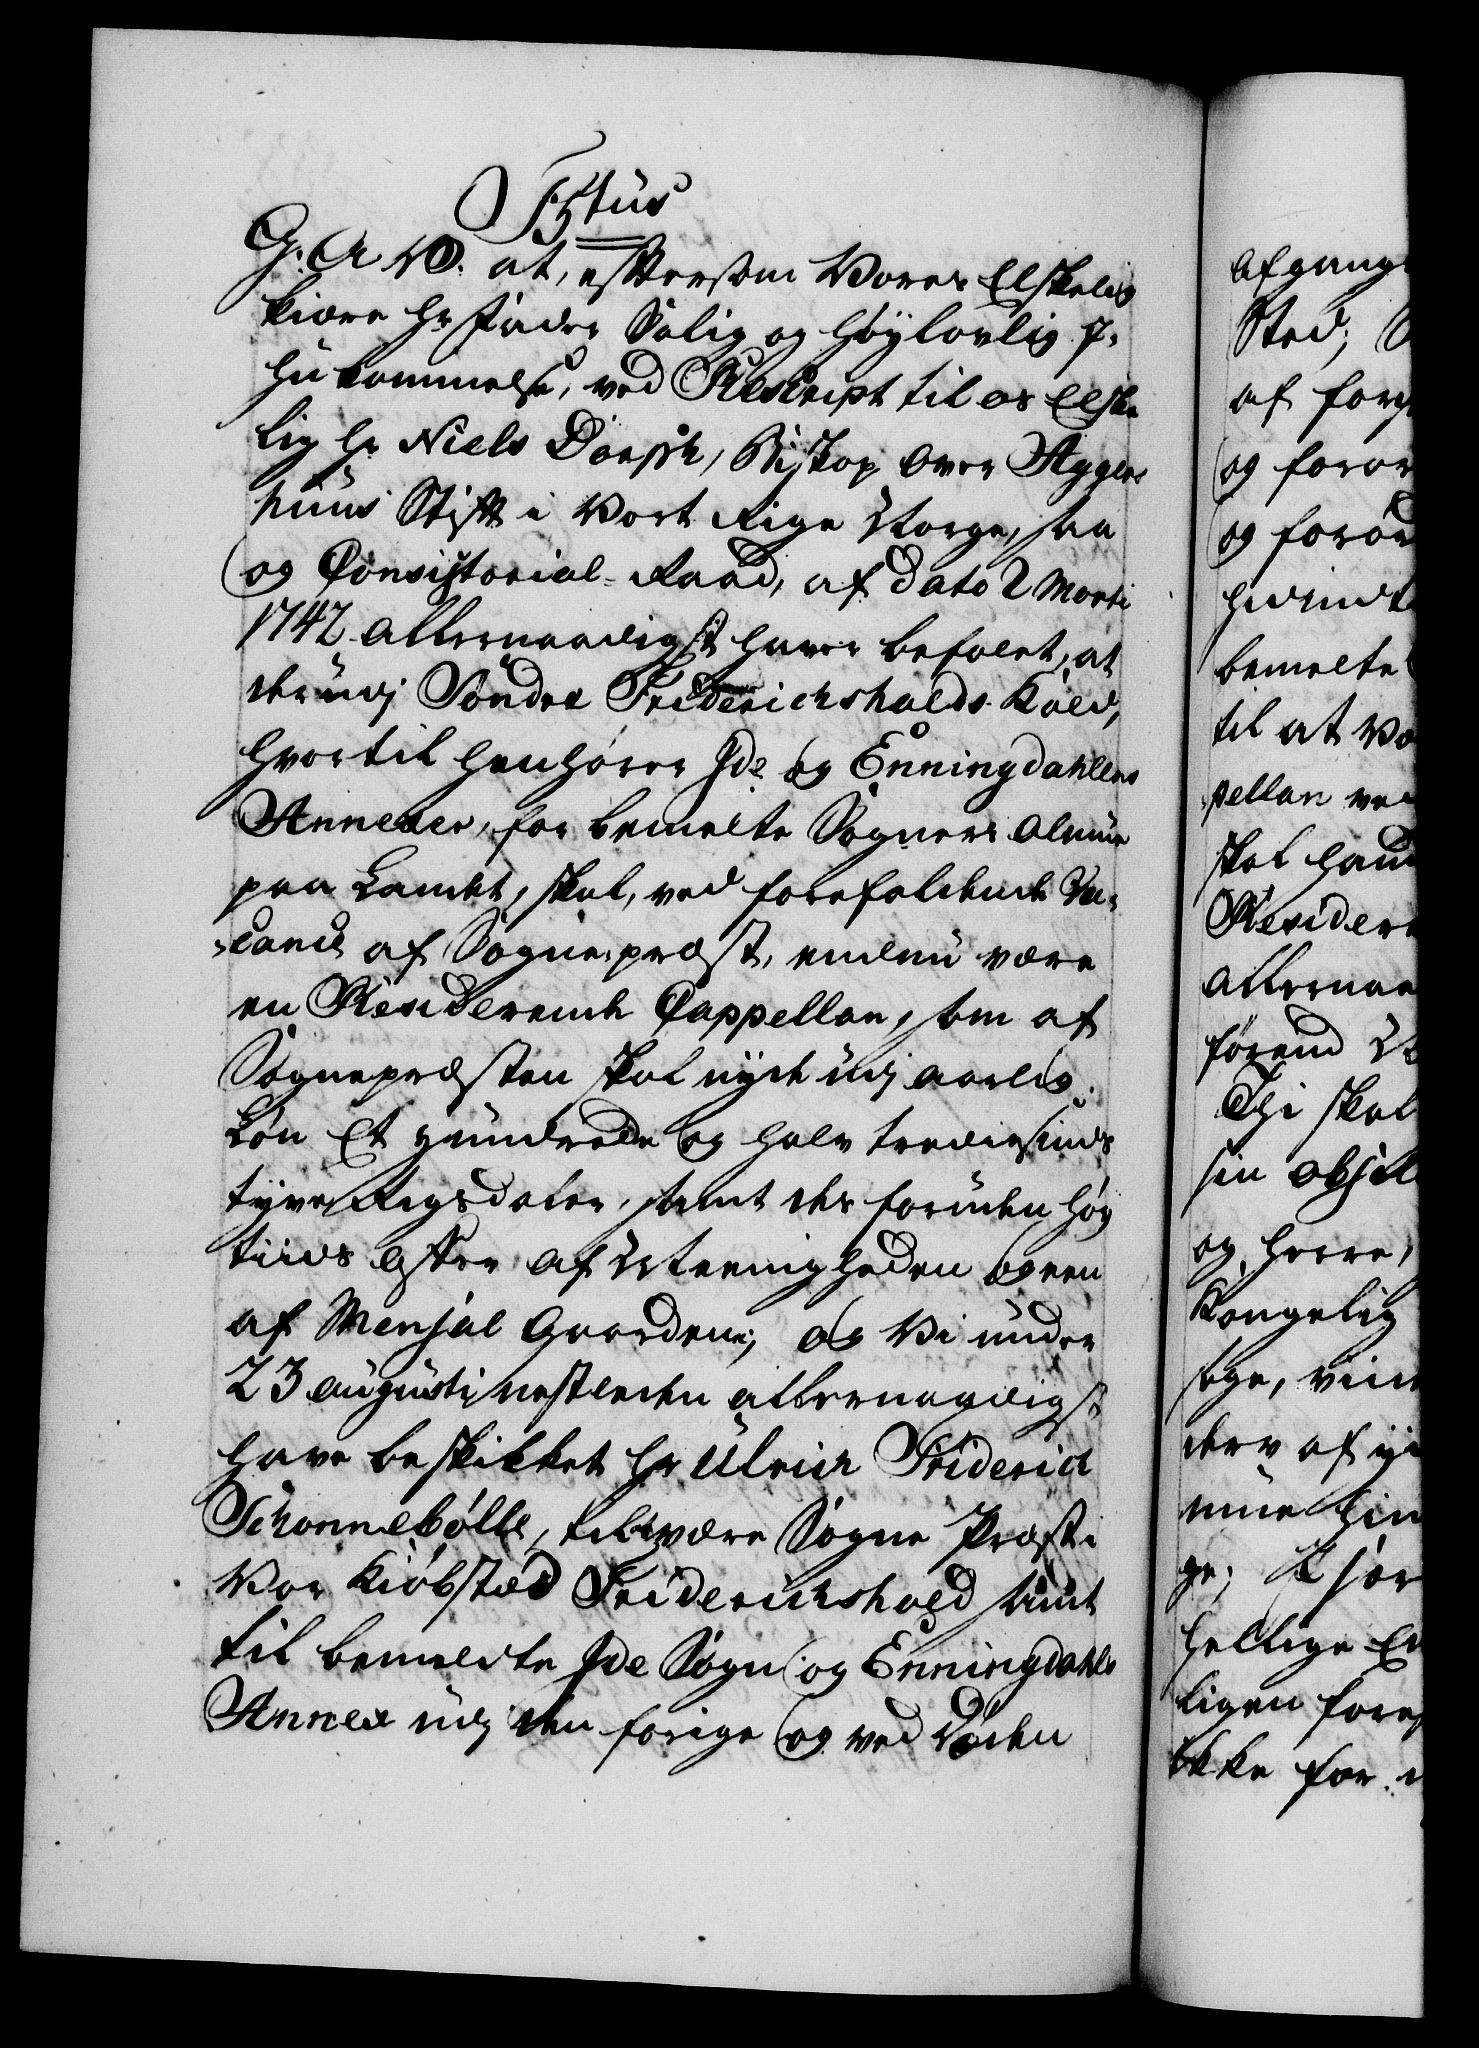 F5tus
G. A. V. at, eftersom Vores Elskelig
kiære Hr Fader Salig og høylovlig J-
hukommelse, ved Rescript til os Elske
lig Hr Niels Dorph, Biskop over Agger
huus Stift i Vort Rige Norge, saa
og Consistorial-Raad, af dato 2 Marti
1742 allernaadigst haver befalet, at
derudj Søndre Friderichshalds Kald,
hvortil henhører Ide og Enningdahlens
Annexer, for bemelte Sogners Almue
paa Landet, skal, ved forefaldende Va-
cance af Sogne-præst, endnu være
en Residerende Cappellan, som af
Sognepræsten skal nyde udj aarlig
Løn Et Hundrede og halv trediesinds
tyve Rigsdaler, samt des foruden Høy
tiids Offer af Meenigheden og een
af Mensal Gaardene; og Vi under
23 augusti nestleden allernaadigst
have beskikket Hr Ulrich Friderich
Schonnebølle, til at være Sogne Præst i
Vor Kiøbstæd Friderichshald samt
til bemeldte Ide Sogn og Enningdahls
Annex udj den forige og ved Døden
afgang
Sted;
af for
og foror
og foror
hidindt
bemelte
til at Vo
pellan ved
skal hand
Residere
allernaa
førend
Thi skal
sin
og Herre,
Kongelig
søge,
derv af
mue hin
ge;
hellige Ev
ligen fores
ikke for